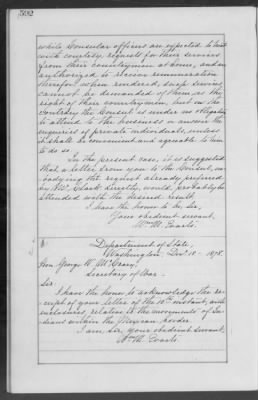 while Consular officers are expected to treat
with courtesy, requests for their services
from their countrymen at home, and are
authorized to receive remuneration
therefor when rendered, such services
cannot be demanded of them as the
right of their countrymen, but on the
contrary the Consul is under no obligation
to attend to the business or answer the
enquiries of private individuals, unless
it shall be convenient and agreeable to him
to do so.
In the present case, it is suggested
that a letter from you to the Consul, em-
bodying the request already preferred
by Mr. Clark directly, would probably be
attended with the desired result.
I have the honor to be, Sir,
Your obedient servant,
Wm. M. Evarts.
Department of State,
Washington, Decr. 18th 1878.
Hon. George W. McCrary,
Secretary of War.
Sir:
I have the honor to acknowledge the re-
ceipt of your letter of the 10th instant, with
enclosures, relative to the movements of In-
dians within the Mexican border.
I am, sir, your obedient servant,
Wm. M. Evarts